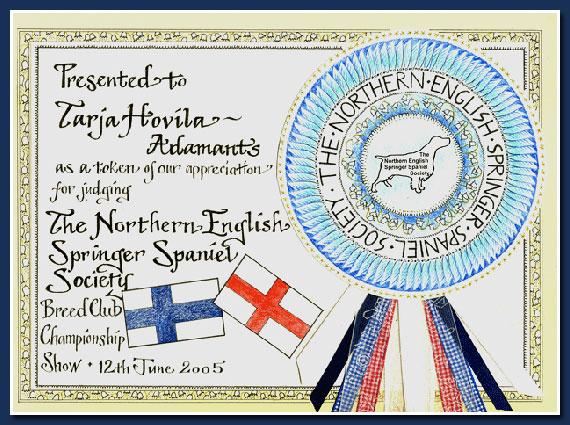 Presented to
Tarja Hovila ~
Adamants
as a token of our appreciation
for judging
The Northern English
Springer Spaniel
Society
Breed Club
Championship
Show • 12th June 2005
THE • NORTHERN • ENGLISH • SPRINGER • SPANIEL • SOCIETY •
The
Northern English
Springer Spaniel
Society